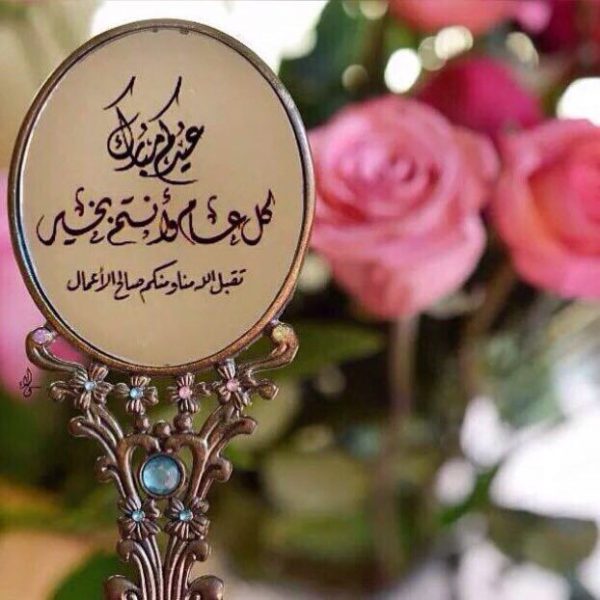 عيدكم مبارك
كل عام وأنتم بخير
تقبل الله منا ومنكم صالح الأعمال